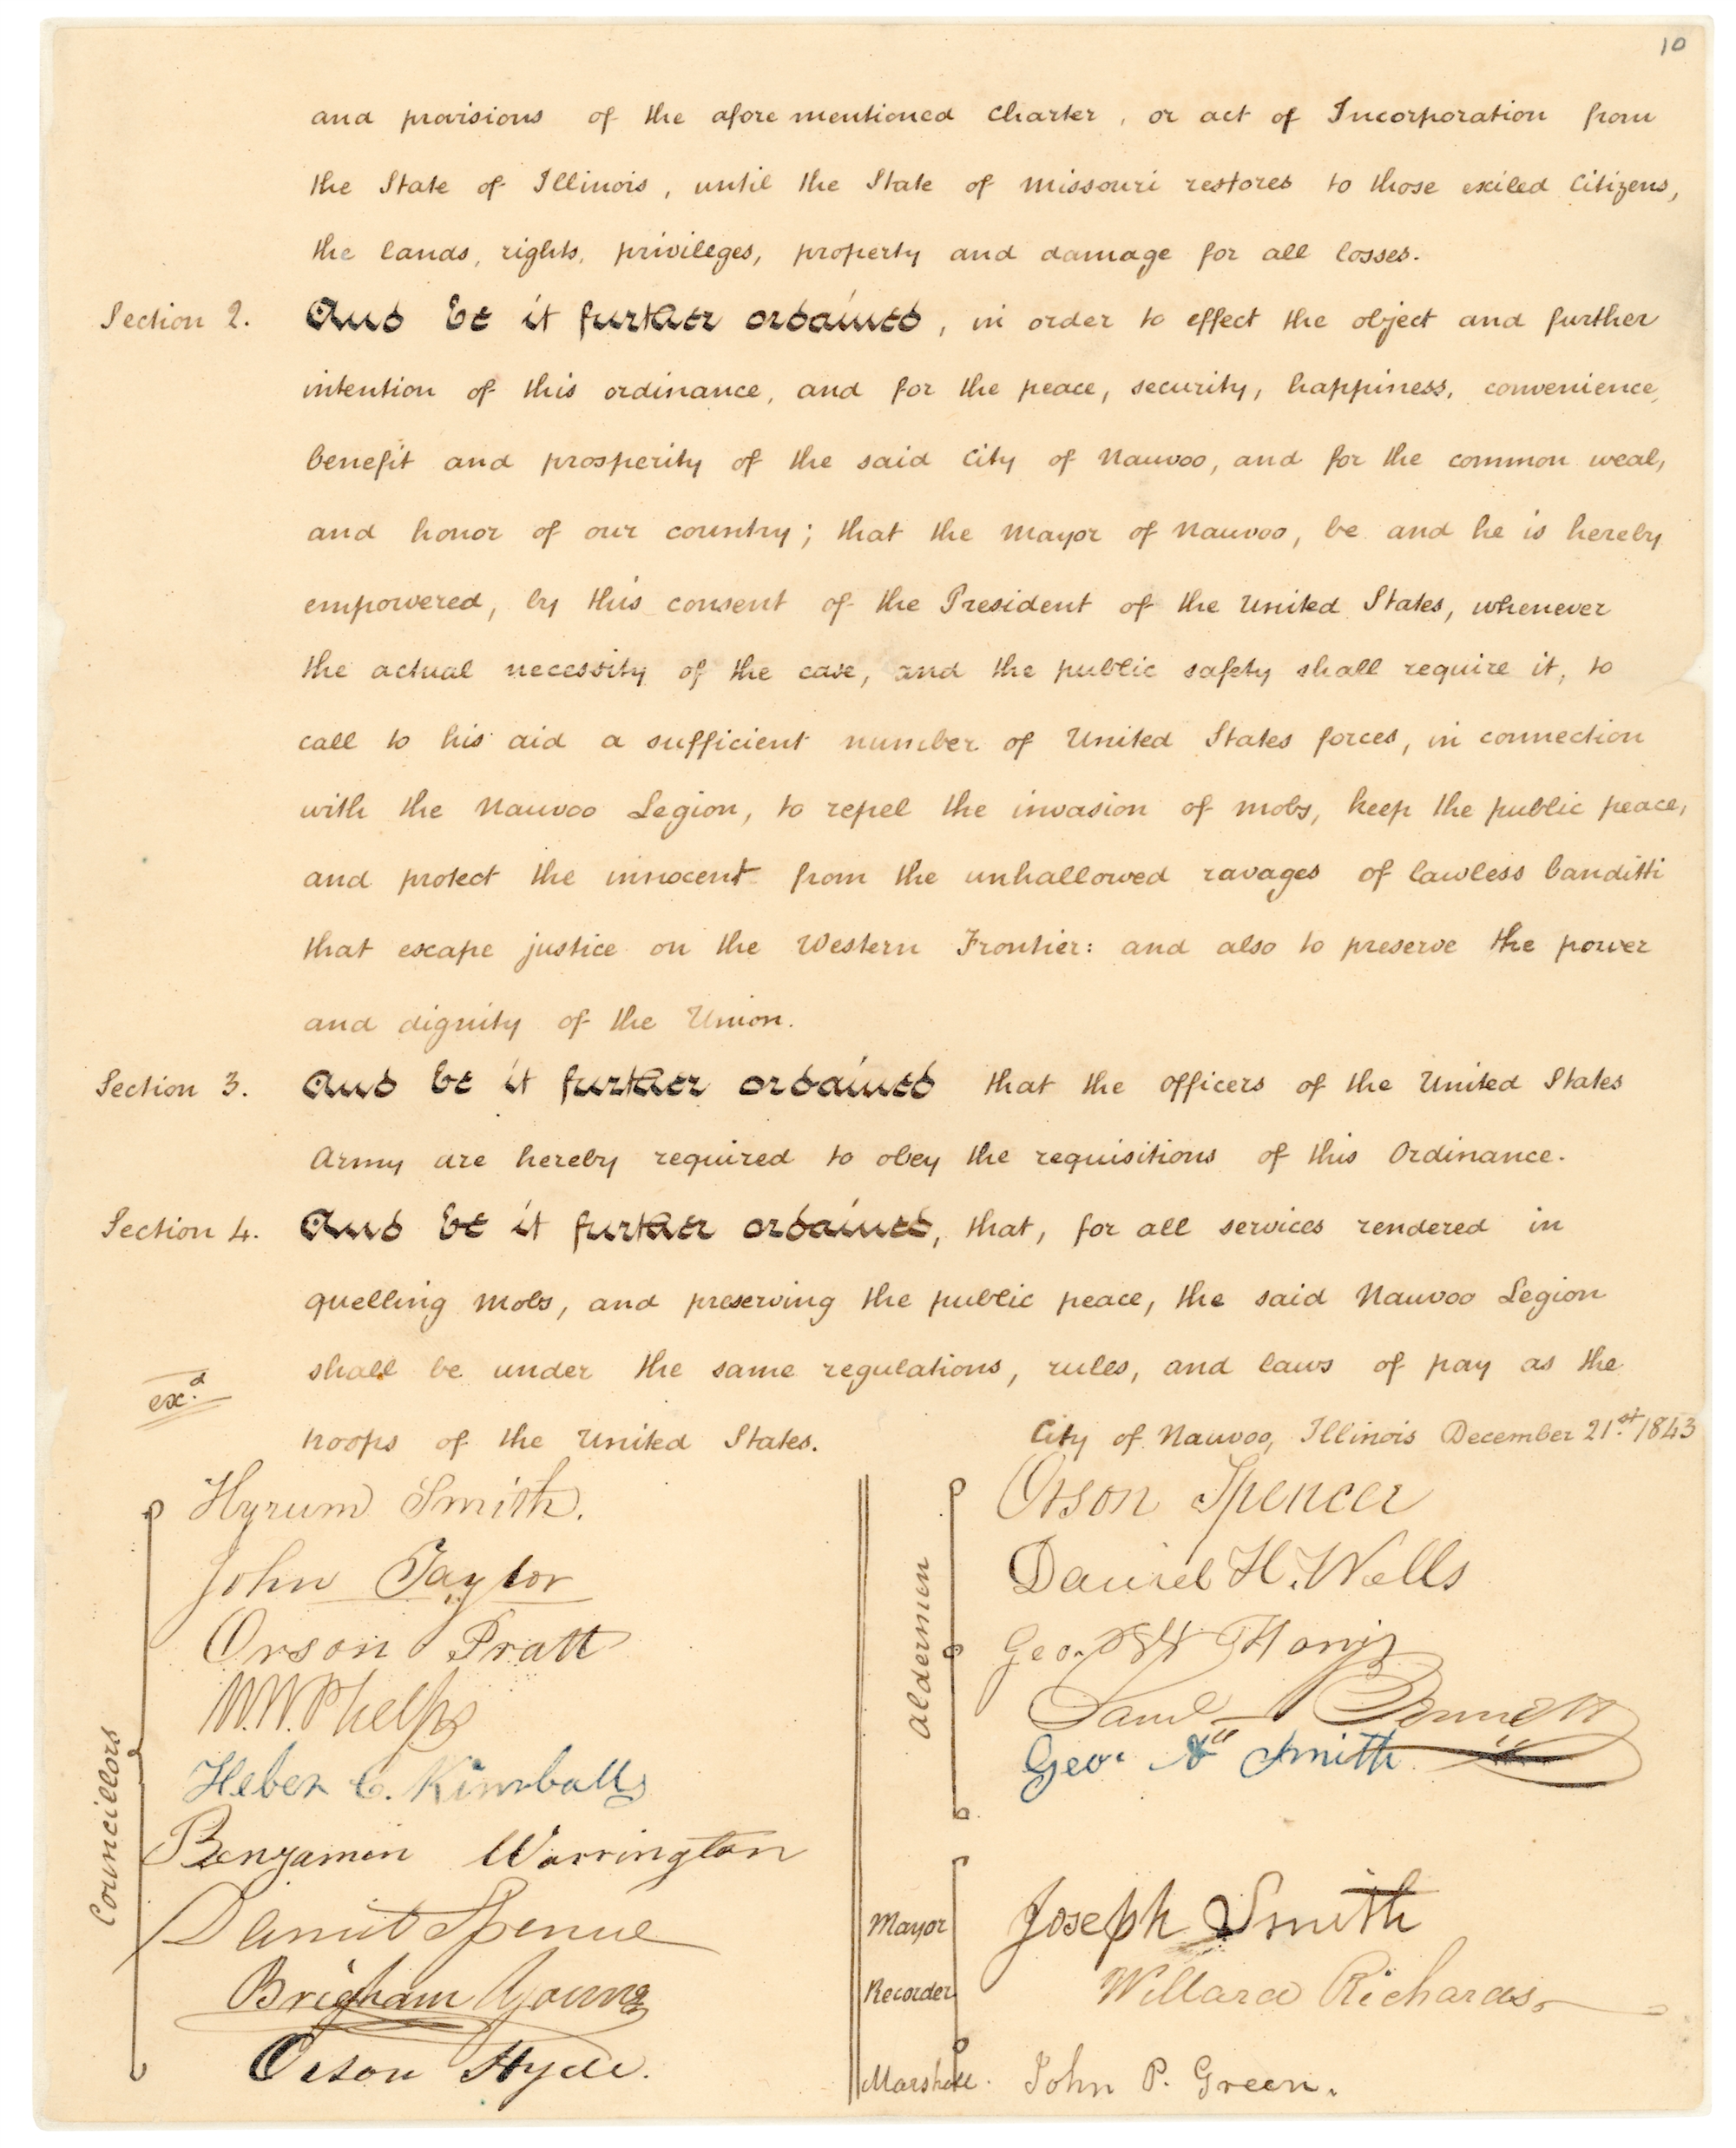 10
and provisions of the afore mentioned Charter, or act of Incorporation from
the State of Illinois, until the State of Missouri restores to those exiled Citizens,
the lands, rights, privileges, property and damage for all losses.
Section 2. And be it further ordained, in order to effect the object and further
intention of this ordinance, and for the peace, security, happiness, convenience,
benefit and prosperity of the said City of Nauvoo, and for the common weal,
and honor of our country; that the Mayor of Nauvoo, be and he is hereby
empowered, by this consent of the President of the United States, whenever
the actual necessity of the case, and the public safety shall require it, to
call to his aid a sufficient number of United States forces, in connection
with the Nauvoo Legion, to repel the invasion of mobs, keep the public peace,
and protect the innocent from the unhallowed ravages of lawless banditti
that escape justice on the Western Frontier: and also to preserve the power
and dignity of the Union.
Section 3. And be it further ordained that the officers of the United States
Army are hereby required to obey the requisitions of this Ordinance.
Section 4. And be it further ordained, that, for all services rendered in
quelling Mobs, and preserving the public peace, the said Nauvoo Legion
shall be under the same regulations, rules, and laws of pay as the
ex.d
troops of the United States.
City of Nauvoo, Illinois December 21.st 1843
Councillors
Hyrum Smith.
John Taylor
Orson Pratt
W. W. Phelps
Heber C. Kimball
Benjamin Warrington
Daniel Spencer
Brigham Young
Orson Hyde.
Aldermen
Orson Spencer
Daniel H. Wells
Geo. W Harris
Saml Bennett
Geo. A Smith
Mayor Joseph Smith
Recorder Willard Richards,
Marshall. John P. Green.